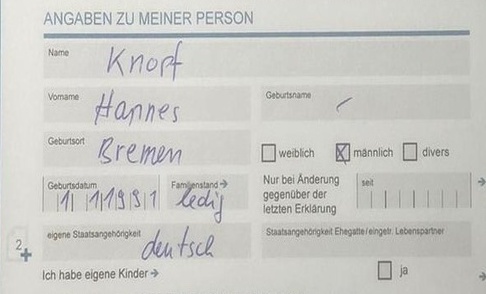 ANGABEN ZU MEINER PERSON
Name
Knopf
Vorname
Hannes
Geburtsname
Geburtsort
Bremen
weiblich
männlich
divers
Geburtsdatum
1 1 1991
Familienstand
ledig
Nur bei Änderung
gegenüber der
letzten Erklärung
seit
2
eigene Staatsangehörigkeit
deutsch
Staatsangehörigkeit Ehegatte/eingetr. Lebenspartner
Ich habe eigene Kinder
ja